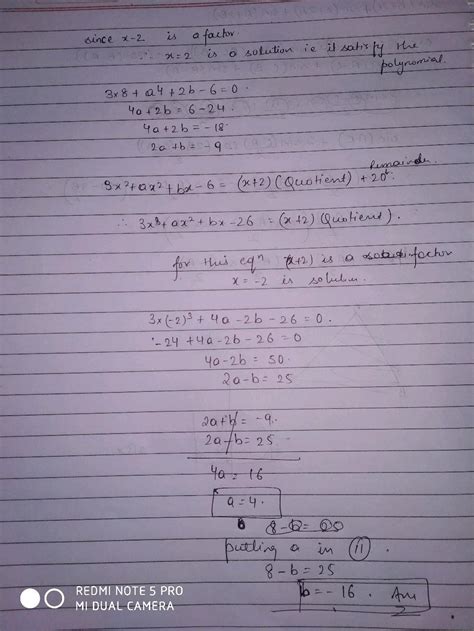 since x-2 is a factor.
∵ x=2 is a solution i.e it satisfy the
polynomial.
3x8 + a4 + 2b - 6 = 0.
4a + 2b = 6 - 24.
4a + 2b = -18
2a + b = -9
3x³ + ax² + bx - 6 = (x+2) (Quotient) + 20
Remainder
∴ 3x³ + ax² + bx - 26 = (x+2) (Quotient).
for this eqn (x+2) is a factor
x = -2 is solution.
3x(-2)³ + 4a - 2b - 26 = 0.
-24 + 4a - 2b - 26 = 0
4a - 2b = 50.
2a - b = 25
2a + b = -9.
2a - b = 25.
4a = 16
a = 4.
8 - b = 25
putting a in (ii).
8 - b = 25
b = -16. Ans
REDMI NOTE 5 PRO
MI DUAL CAMERA